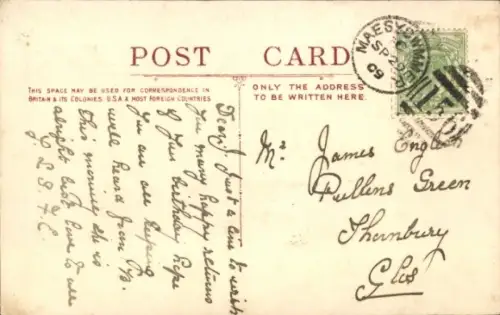 POST CARD
THIS SPACE MAY BE USED FOR CORRESPONDENCE IN
BRITAIN & ITS COLONIES. U.S.A & MOST FOREIGN COUNTRIES
ONLY THE ADDRESS
TO BE WRITTEN HERE.
MAESYCWMMER
SP 29
09
Dear J. Just a line to wish
you many happy returns
of your birthday hope
you are keeping
well heard from
this morning she is
alright best love to all
Mr James Engle
Pullens Green
Thornbury
Glos